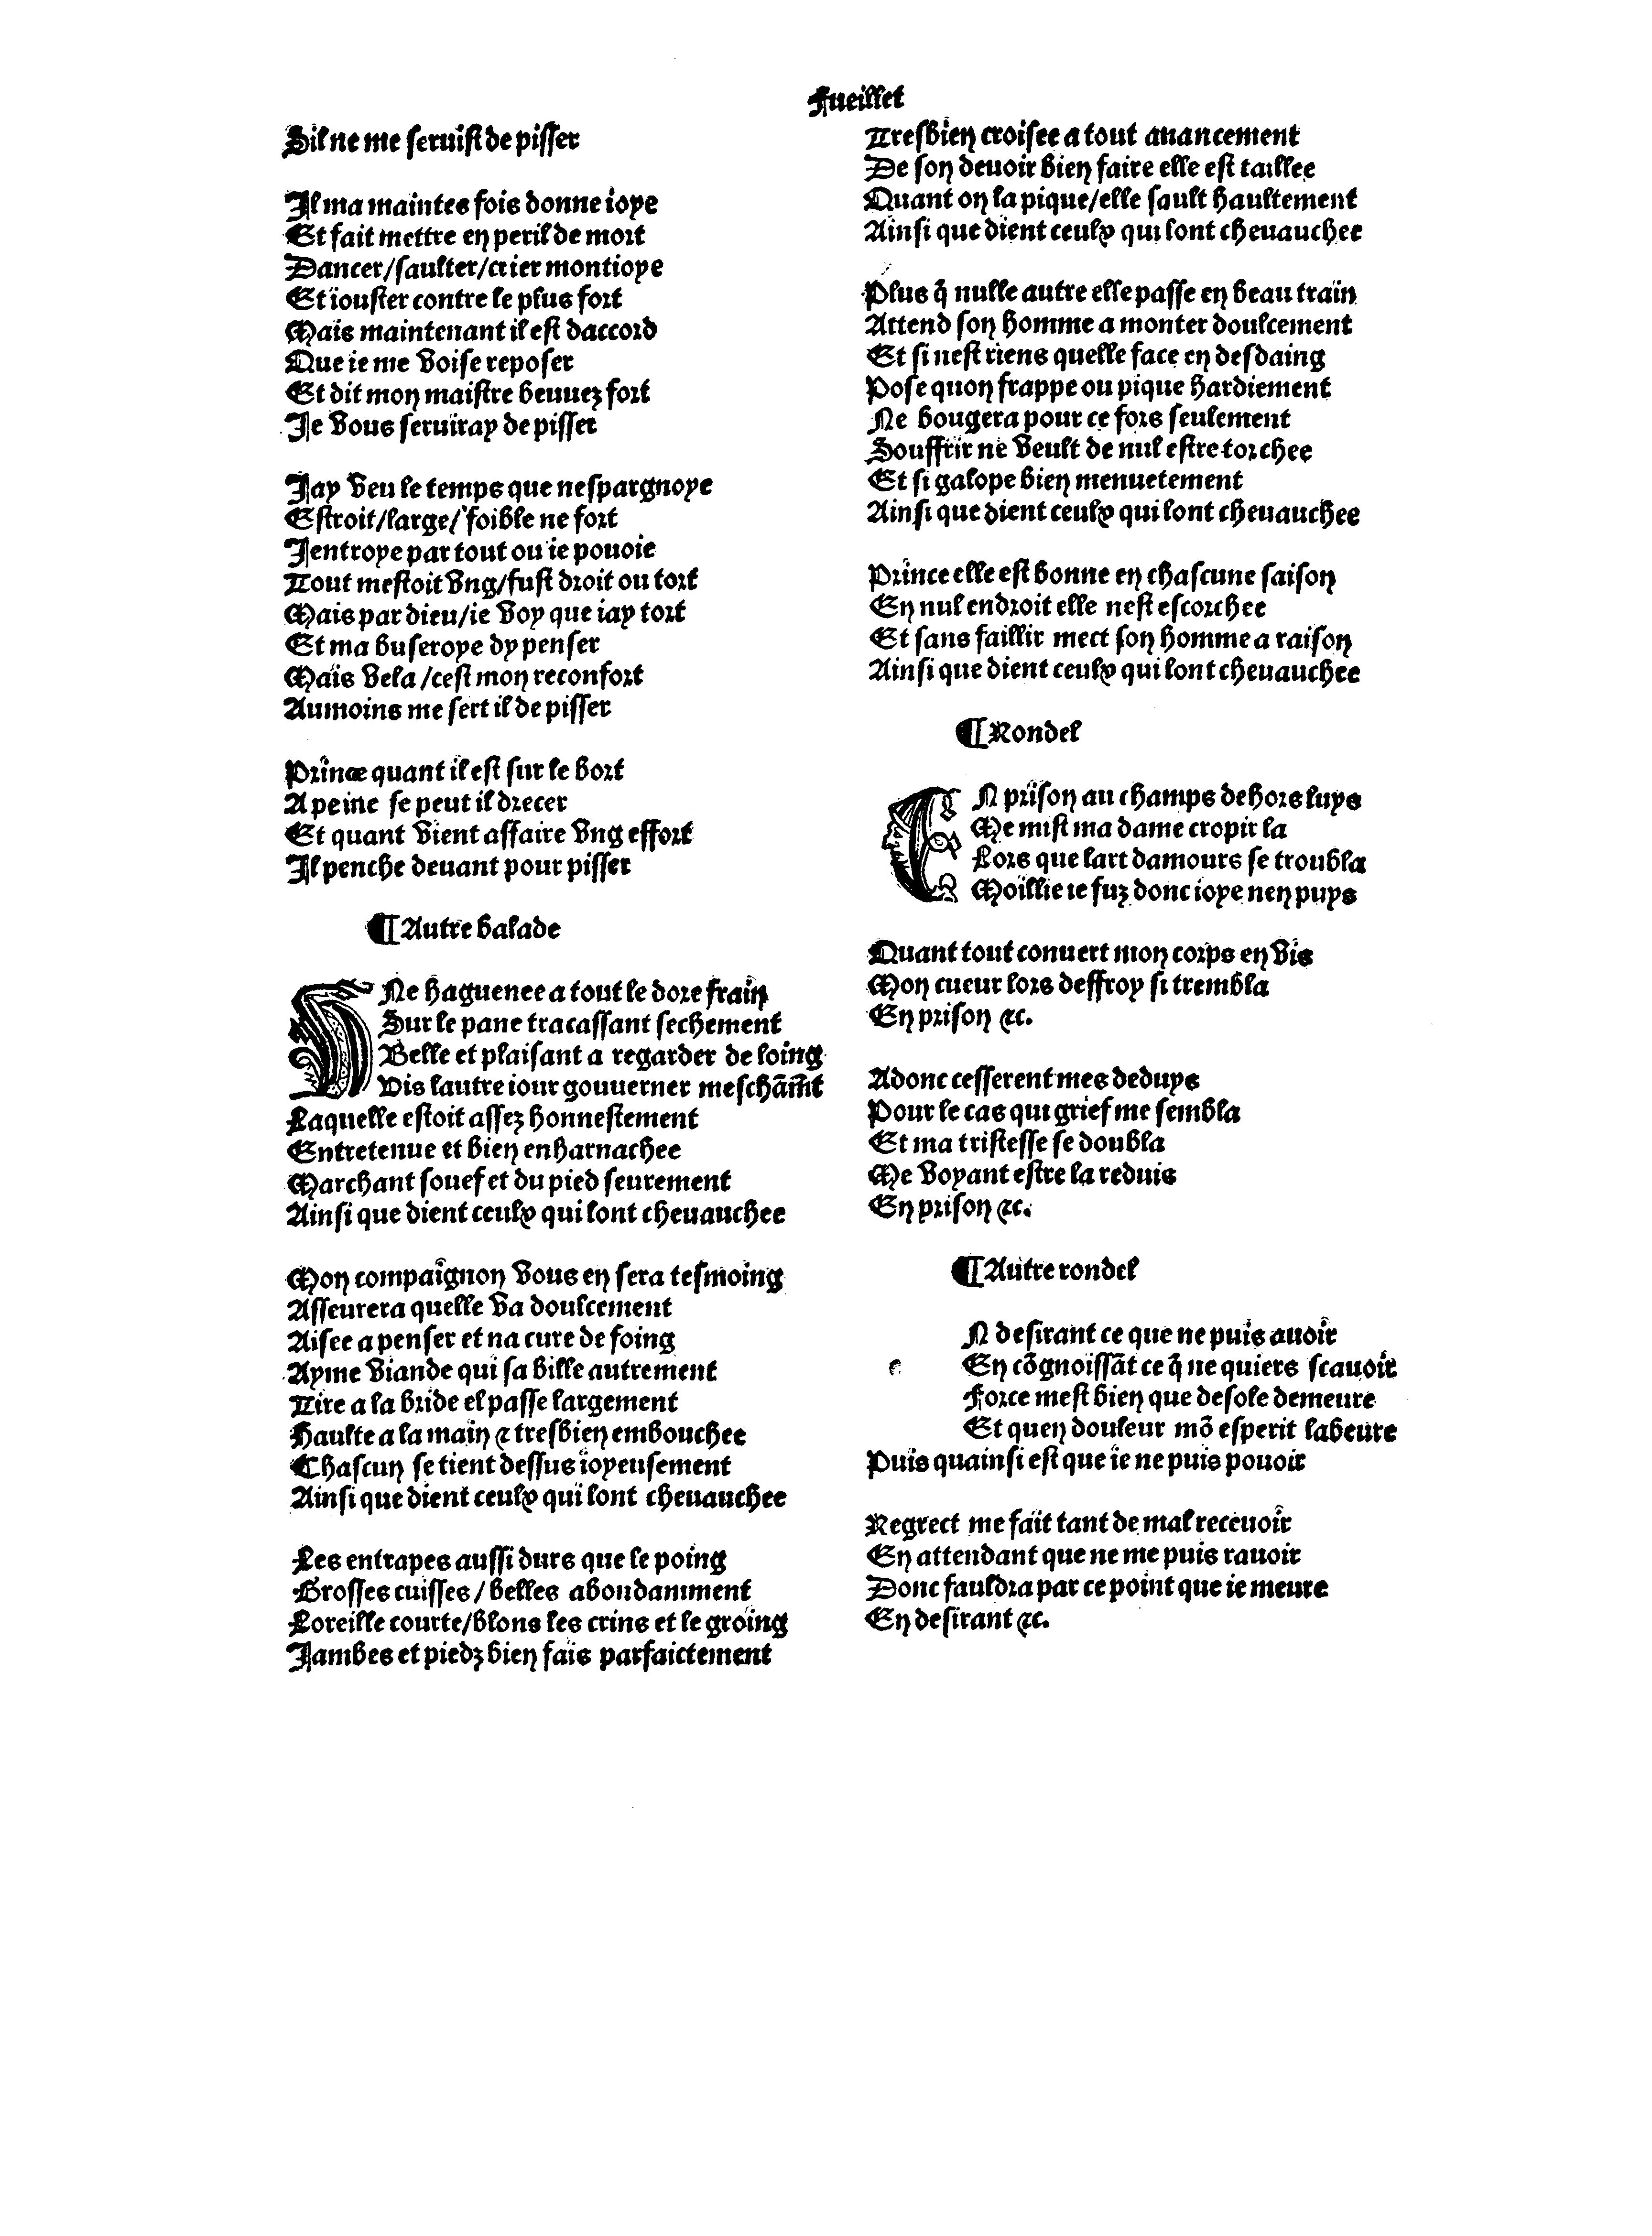 Fueillet
Sil ne me seruist de pisser
Il ma maintes fois donne ioye
Et fait mettre en peril de mort
Dancer/saulter/crier montioye
Et iouster contre le plus fort
Mais maintenant il est daccord
Que ie me voise reposer
Et dit mon maistre beuuez fort
Je vous seruiray de pisser
Jay veu le temps que nespargnoye
Estroit/large/foible ne fort
Jentroye par tout ou ie pouoie
Tout mestoit vng/fust droit ou tort
Mais par dieu/ie voy que iay tort
Et ma buseroye dy penser
Mais vela/cest mon reconfort
Aumoins me sert il de pisser
Prince quant il est sur le bort
A peine se peut il drecer
Et quant vient affaire vng effort
Il penche deuant pour pisser
¶ Autre balade
VNe haguenee a tout le dore frain
Sur le pane tracassant sechement
Belle et plaisant a regarder de loing
Vis lautre iour gouuerner meschãmẽt
Laquelle estoit assez honnestement
Entretenue et bien enharnachee
Marchant souef et du pied seurement
Ainsi que dient ceulx qui lont cheuauchee
Mon compaignon vous en sera tesmoing
Asseurera quelle va doulcement
Aisee a penser et na cure de foing
Ayme viande qui sa bille autrement
Tire a la bride el passe largement
Haulte a la main & tresbien embouchee
Chascun se tient dessus ioyeusement
Ainsi que dient ceulx qui lont cheuauchee
Les entrapes aussi durs que le poing
Grosses cuisses/belles abondamment
Loreille courte/blons les crins et le groing
Jambes et piedz bien fais parfaictement
Tresbien croisee a tout auancement
De son deuoir bien faire elle est taillee
Quant on la pique/elle sault haultement
Ainsi que dient ceulx qui lont cheuauchee
Plus q̃ nulle autre elle passe en beau train
Attend son homme a monter doulcement
Et si nest riens quelle face en desdaing
Pose quon frappe ou pique hardiement
Ne bougera pour ce fors seulement
Souffrir ne veult de nul estre torchee
Et si galope bien menuetement
Ainsi que dient ceulx qui lont cheuauchee
Prince elle est bonne en chascune saison
En nul endroit elle nest escorchee
Et sans faillir mect son homme a raison
Ainsi que dient ceulx qui lont cheuauchee
¶ Rondel
EN prison au champs dehors luys
Me mist ma dame cropir la
Lors que lart damours se troubla
Moillie ie fuz donc ioye nen puys
Quant tout conuert mon corps en vis
Mon cueur lors deffroy si trembla
En prison &c.
Adonc cesserent mes deduys
Pour le cas qui grief me sembla
Et ma tristesse se doubla
Me voyant estre la reduis
En prison &c.
¶ Autre rondel
e N desirant ce que ne puis auoir
En cõgnoissãt ce q̃ ne quiers scauoir
Force mest bien que desole demeure
Et quen douleur mõ esperit labeure
Puis quainsi est que ie ne puis pouoir
Regrect me fait tant de mal receuoir
En attendant que ne me puis rauoir
Donc fauldra par ce point que ie meure
En desirant &c.